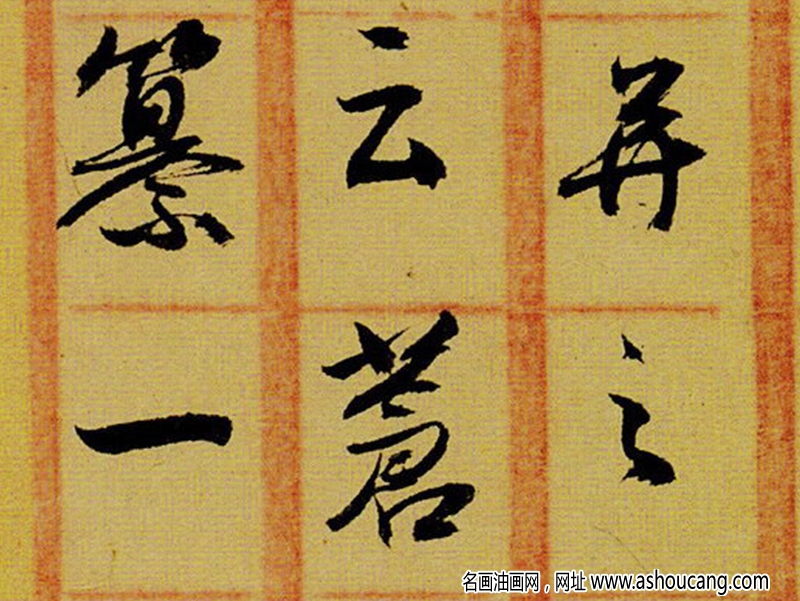 并之
云蒼
纂一
名画油画网，网址 www.ashoucang.com